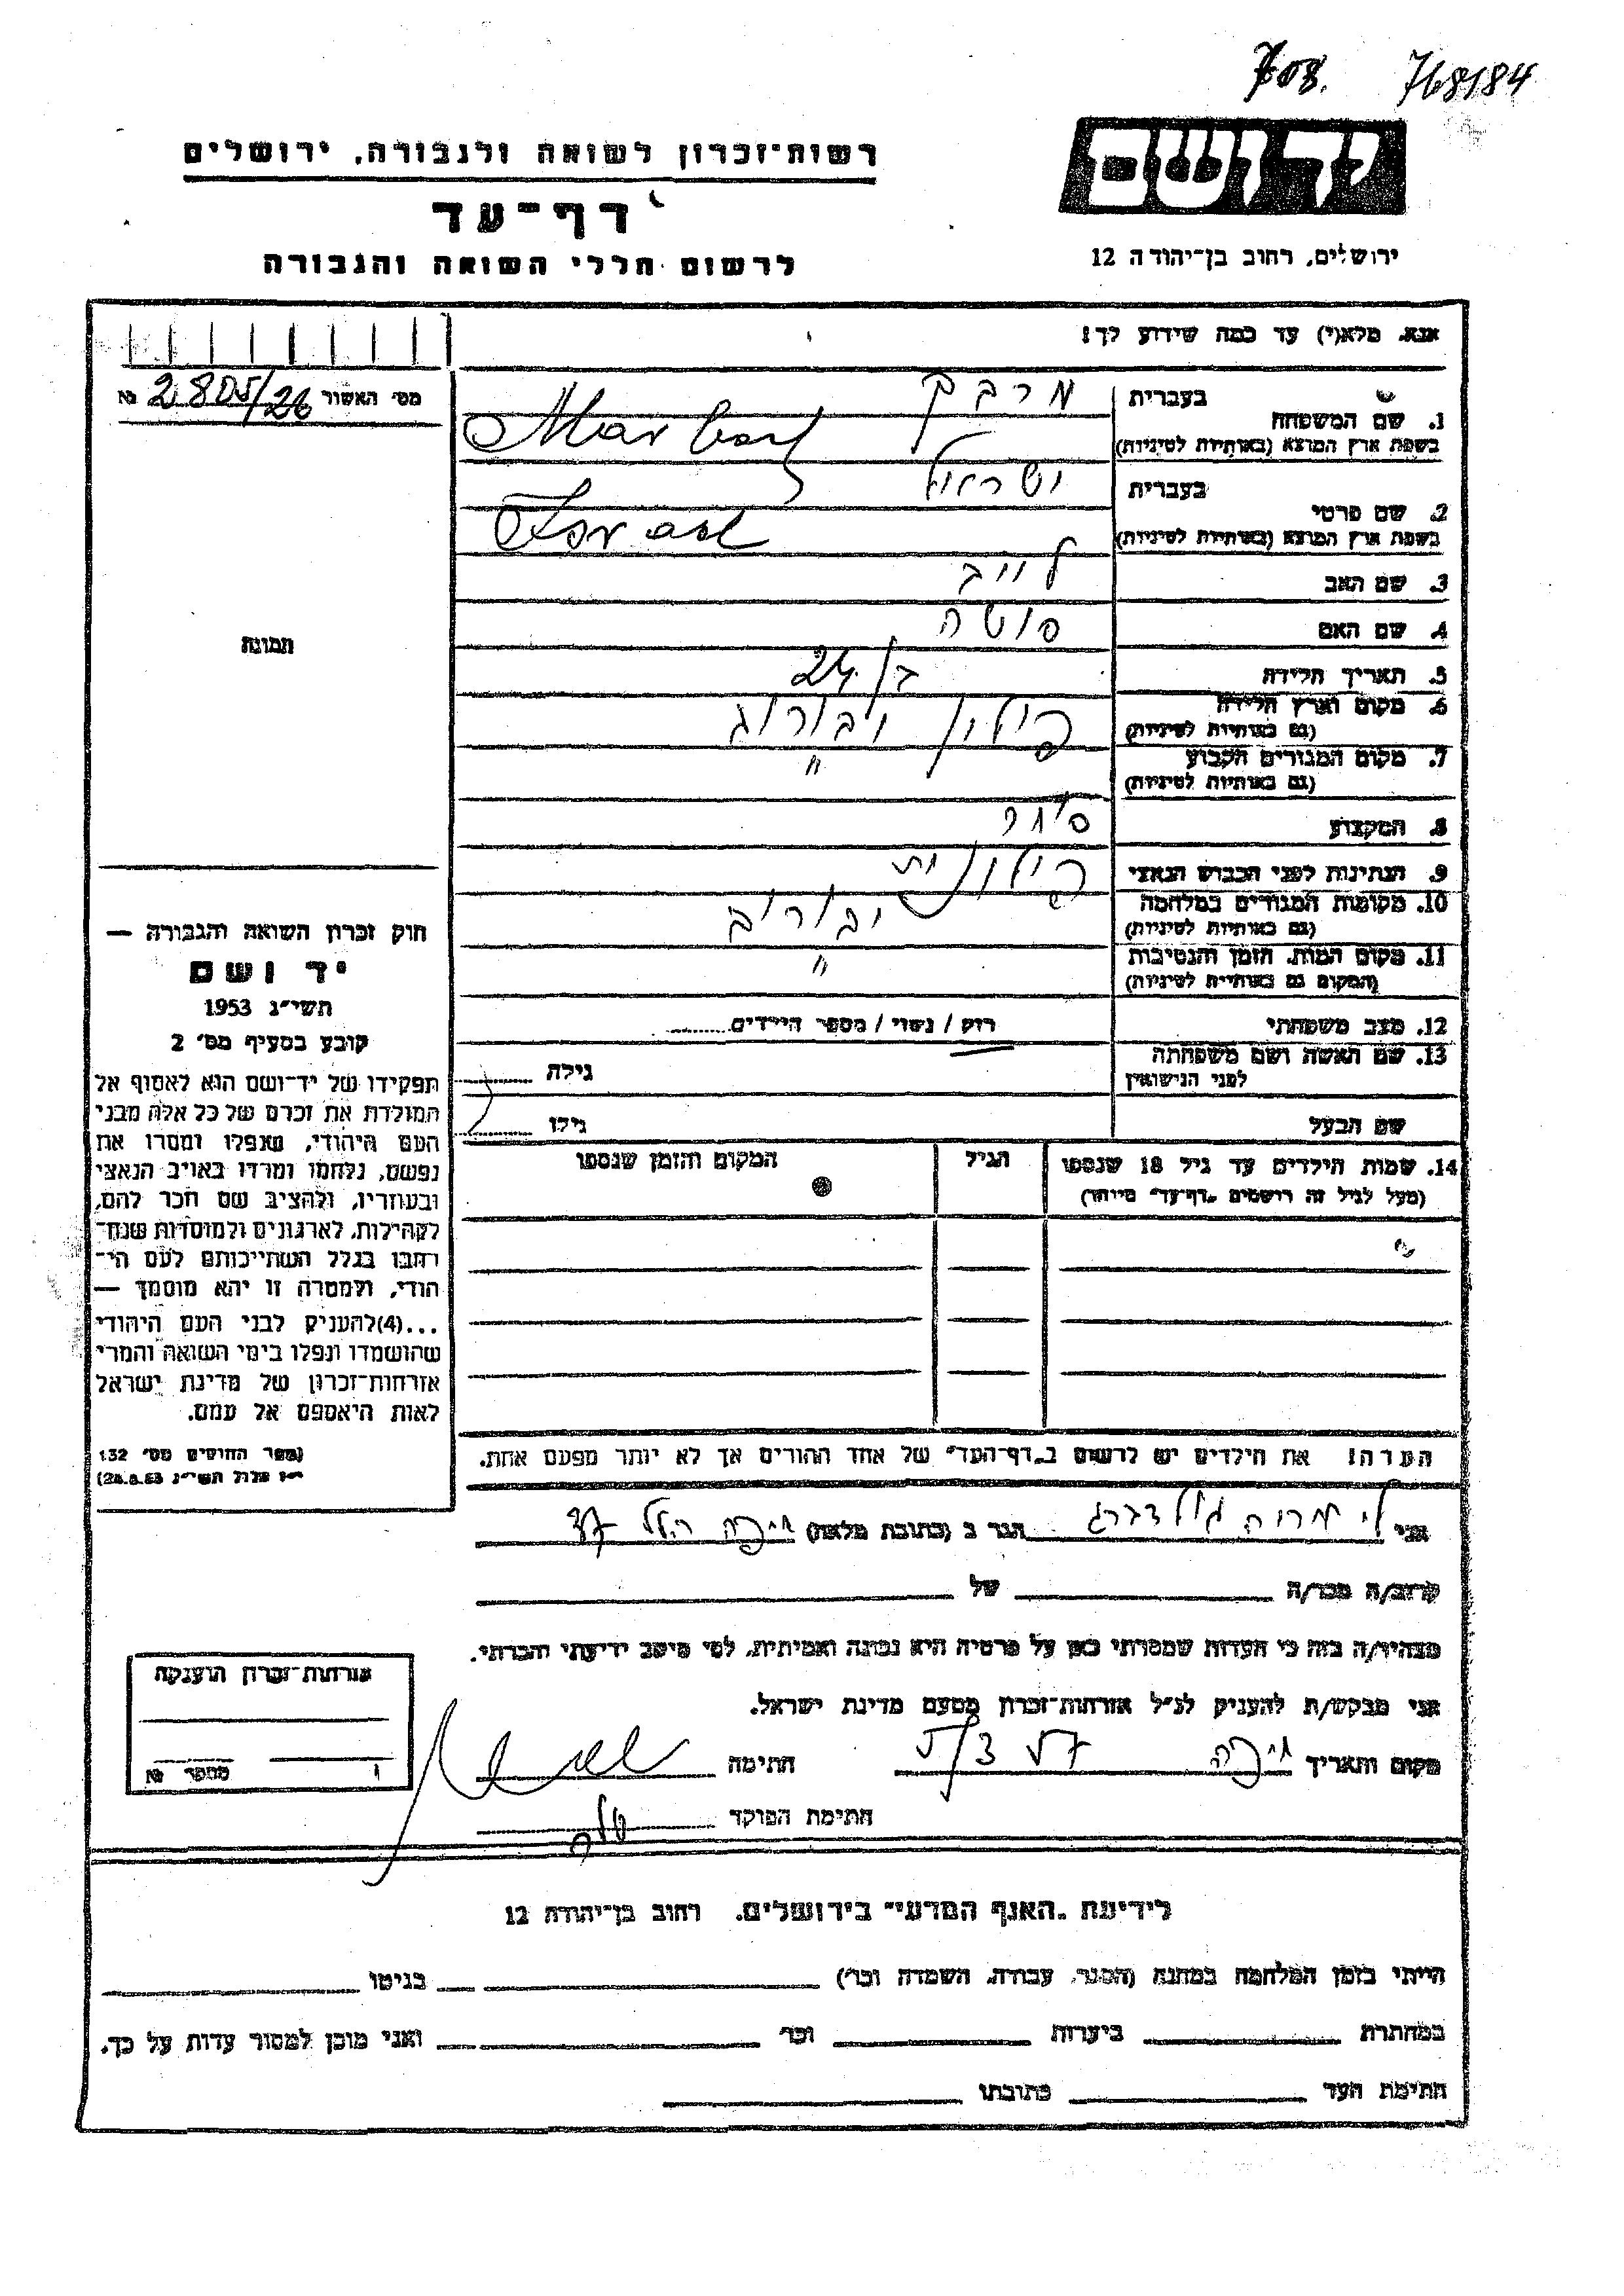 708. 768184
רשות־זכרון לשואה ולגבורה, ירושלים
יד ושם
דף־עד
לרשום חללי השואה והגבורה
ירושלים, רחוב בן־יהודה 12
אנא, מלא(י) עד כמה שידוע לך!
מס׳ האשור № 2805/26
1. שם המשפחה
בעברית מרבך
בשפת ארץ המוצא (באותיות לטיניות) Marbach
2. שם פרטי
בעברית ישראל
בשפת ארץ המוצא (באותיות לטיניות) Israel
3. שם האב לייב
4. שם האם
תמונה
5. תאריך הלידה בן 24
6. מקום וארץ הלידה פולין
(גם באותיות לטיניות)
7. מקום המגורים הקבוע "
(גם באותיות לטיניות)
8. המקצוע סוחר
9. הנתינות לפני הכבוש הנאצי פולנית
10. מקומות המגורים במלחמה
(גם באותיות לטיניות)
11. מקום המות, הזמן והנסיבות "
(המקום גם באותיות לטיניות)
12. מצב משפחתי רווק / נשוי / מספר הילדים
13. שם האשה ושם משפחתה
לפני הנישואין גילה
שם הבעל גילו
14. שמות הילדים עד גיל 18 שנספו הגיל המקום והזמן שנספו
(מעל לגיל זה רושמים „דף־עד" מיוחד)
חוק זכרון השואה והגבורה —
יד ושם
תשי״ג 1953
קובע בסעיף מס׳ 2
תפקידו של יד־ושם הוא לאסוף אל
המולדת את זכרם של כל אלה מבני
העם היהודי, שנפלו ומסרו את
נפשם, נלחמו ומרדו באויב הנאצי
ובעוזריו, ולהציב שם וזכר להם,
לקהילות, לארגונים ולמוסדות שנח־
רבו בגלל השתייכותם לעם הי־
הודי, ולמטרה זו יהא מוסמך —
...(4)להעניק לבני העם היהודי
שהושמדו ונפלו בימי השואה והמרי
אזרחות־זכרון של מדינת ישראל
לאות היאספם אל עמם.
(ספר החוקים מס׳ 132
י״ז אלול תשי״ג 28.8.53)
הערה! את הילדים יש לרשום ב„דף־העד" של אחד ההורים אך לא יותר מפעם אחת.
אני גולדברג הגר ב (כתובת מלאה) חיפה הלל
קרוב/ה מכר/ה של
מצהיר/ה בזה כי העדות שמסרתי כאן על פרטיה היא נכונה ואמיתית, לפי מיטב ידיעתי והכרתי.
אני מבקש/ת להעניק לנ״ל אזרחות־זכרון מטעם מדינת ישראל.
מקום ותאריך חיפה חתימה
חתימת הפוקד
אזרחות־זכרון הוענקה
מספר №
לידיעת „האגף המדעי" בירושלים, רחוב בן־יהודה 12
הייתי בזמן המלחמה במחנה (הסגר, עבודה, השמדה וכו׳) בגיטו
במחתרת ביערות וכו׳ ואני מוכן למסור עדות על כך.
חתימת העד כתובתו